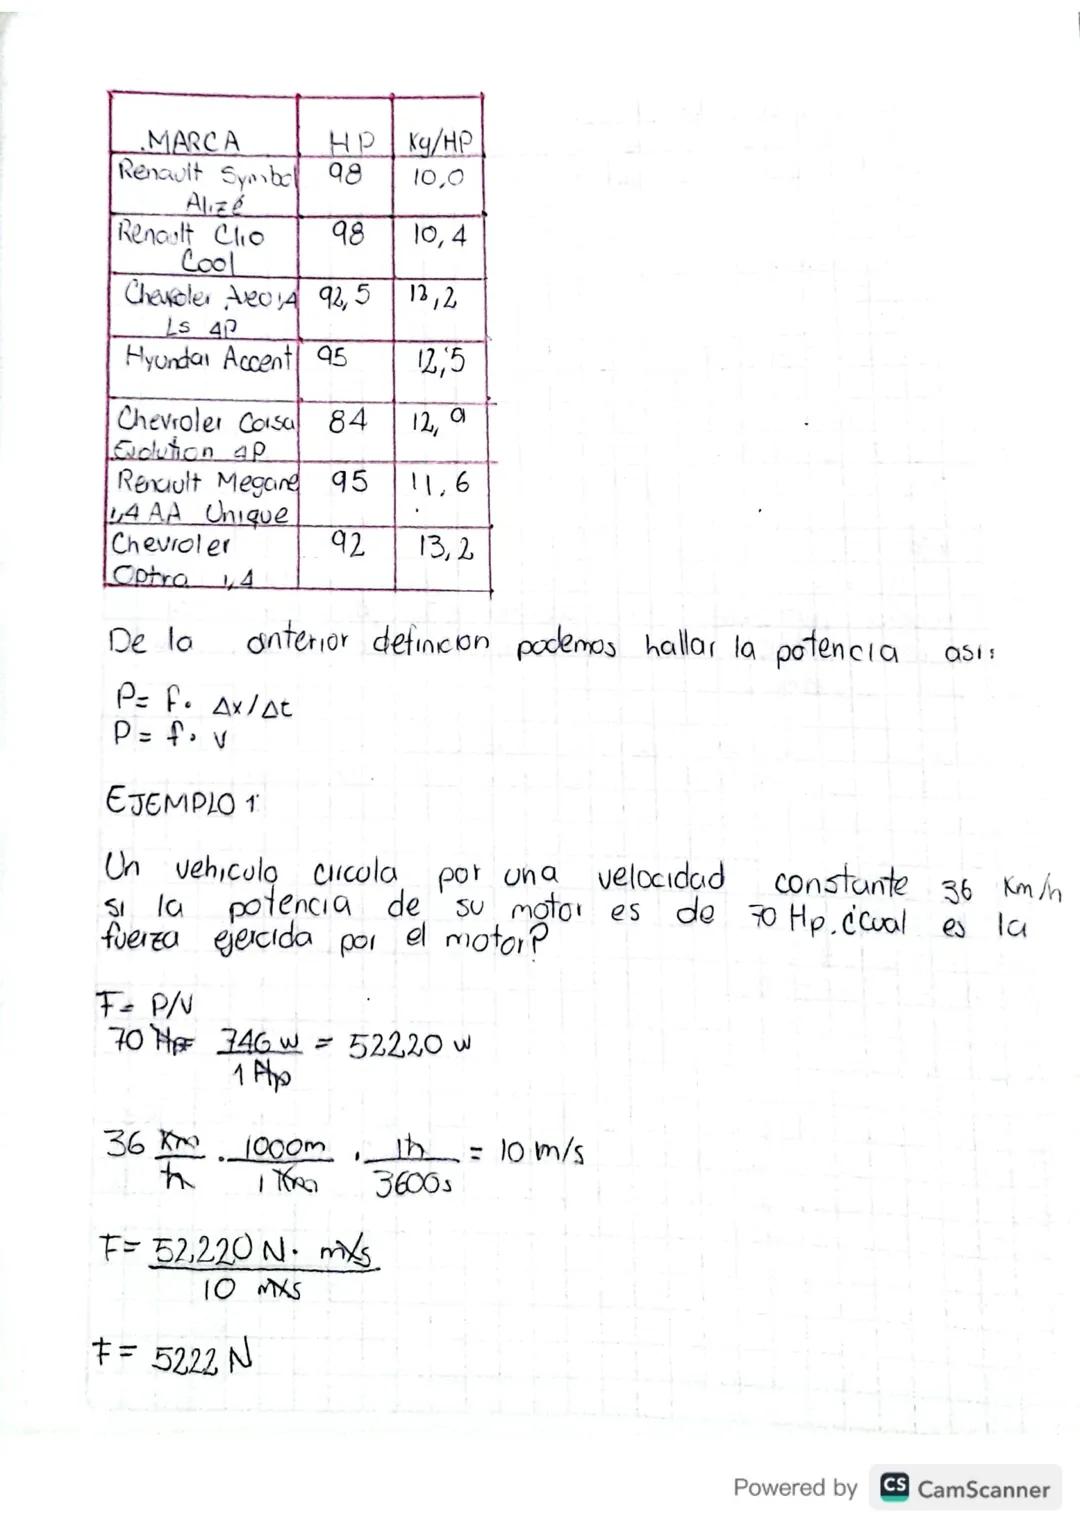 MARCA HP Kg/HP
Renault Symbol 98 10,0
Alizé
Renault Clio 98 10,4
Cool
Chevroler Aeo 1,4 92,5 13,2
Ls 4P
Hyundai Accent 95 12,5
Chevroler Corsa 84 12,9
Evolution 4P
Renault Megane 95 11,6
1,4 AA Unique
Chevroler 92 13,2
Optra 1,4
De la anterior definicion podemos hallar la potencia asi:
P= f. Δx/Δt
P= f. v
EJEMPLO 1
Un vehiculo circola por una velocidad constante 36 Km/h
si la potencia de su motor es de 70 Hp. ¿cual es la
fuerza ejercida por el motor?
F= P/V
70 Hp 746 w = 52220 w
1 Hp
36 Km . 1000m . 1h = 10 m/s
h 1 Km 3600s
F= 52,220 N. m/s
10 m/s
F= 5222 N
Powered by CS CamScanner